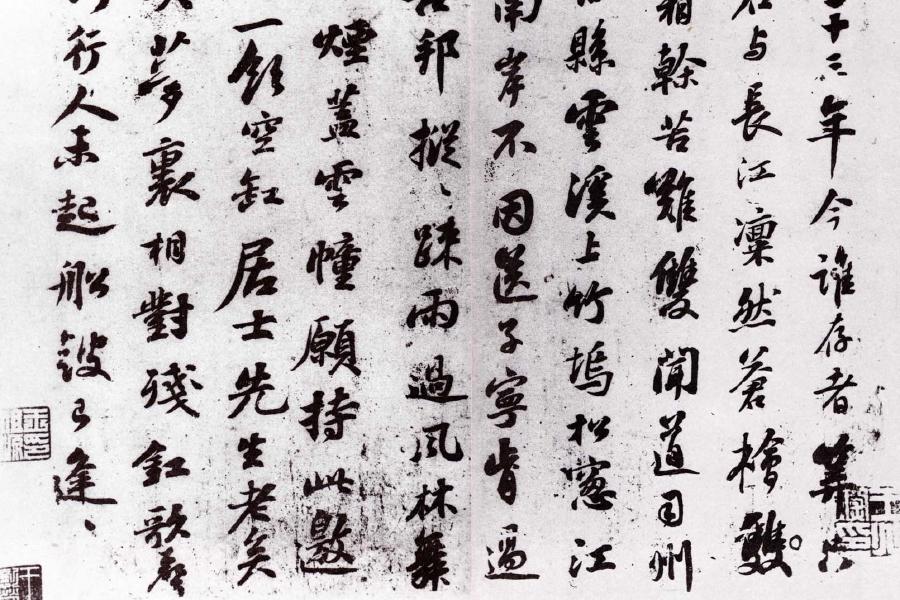 十三年今誰存者算只
君与長江凜然蒼檜雙
霜幹苦難雙聞道司州
縣雲溪上竹塢松窓江
南岸不因送子寧肯過
邦摐〻疎雨過風林舞
煙蓋雲幢願持此邀
一飲空缸居士先生老矣
夢裏相對殘釭歌聲
行人未起船鼓已逢〻